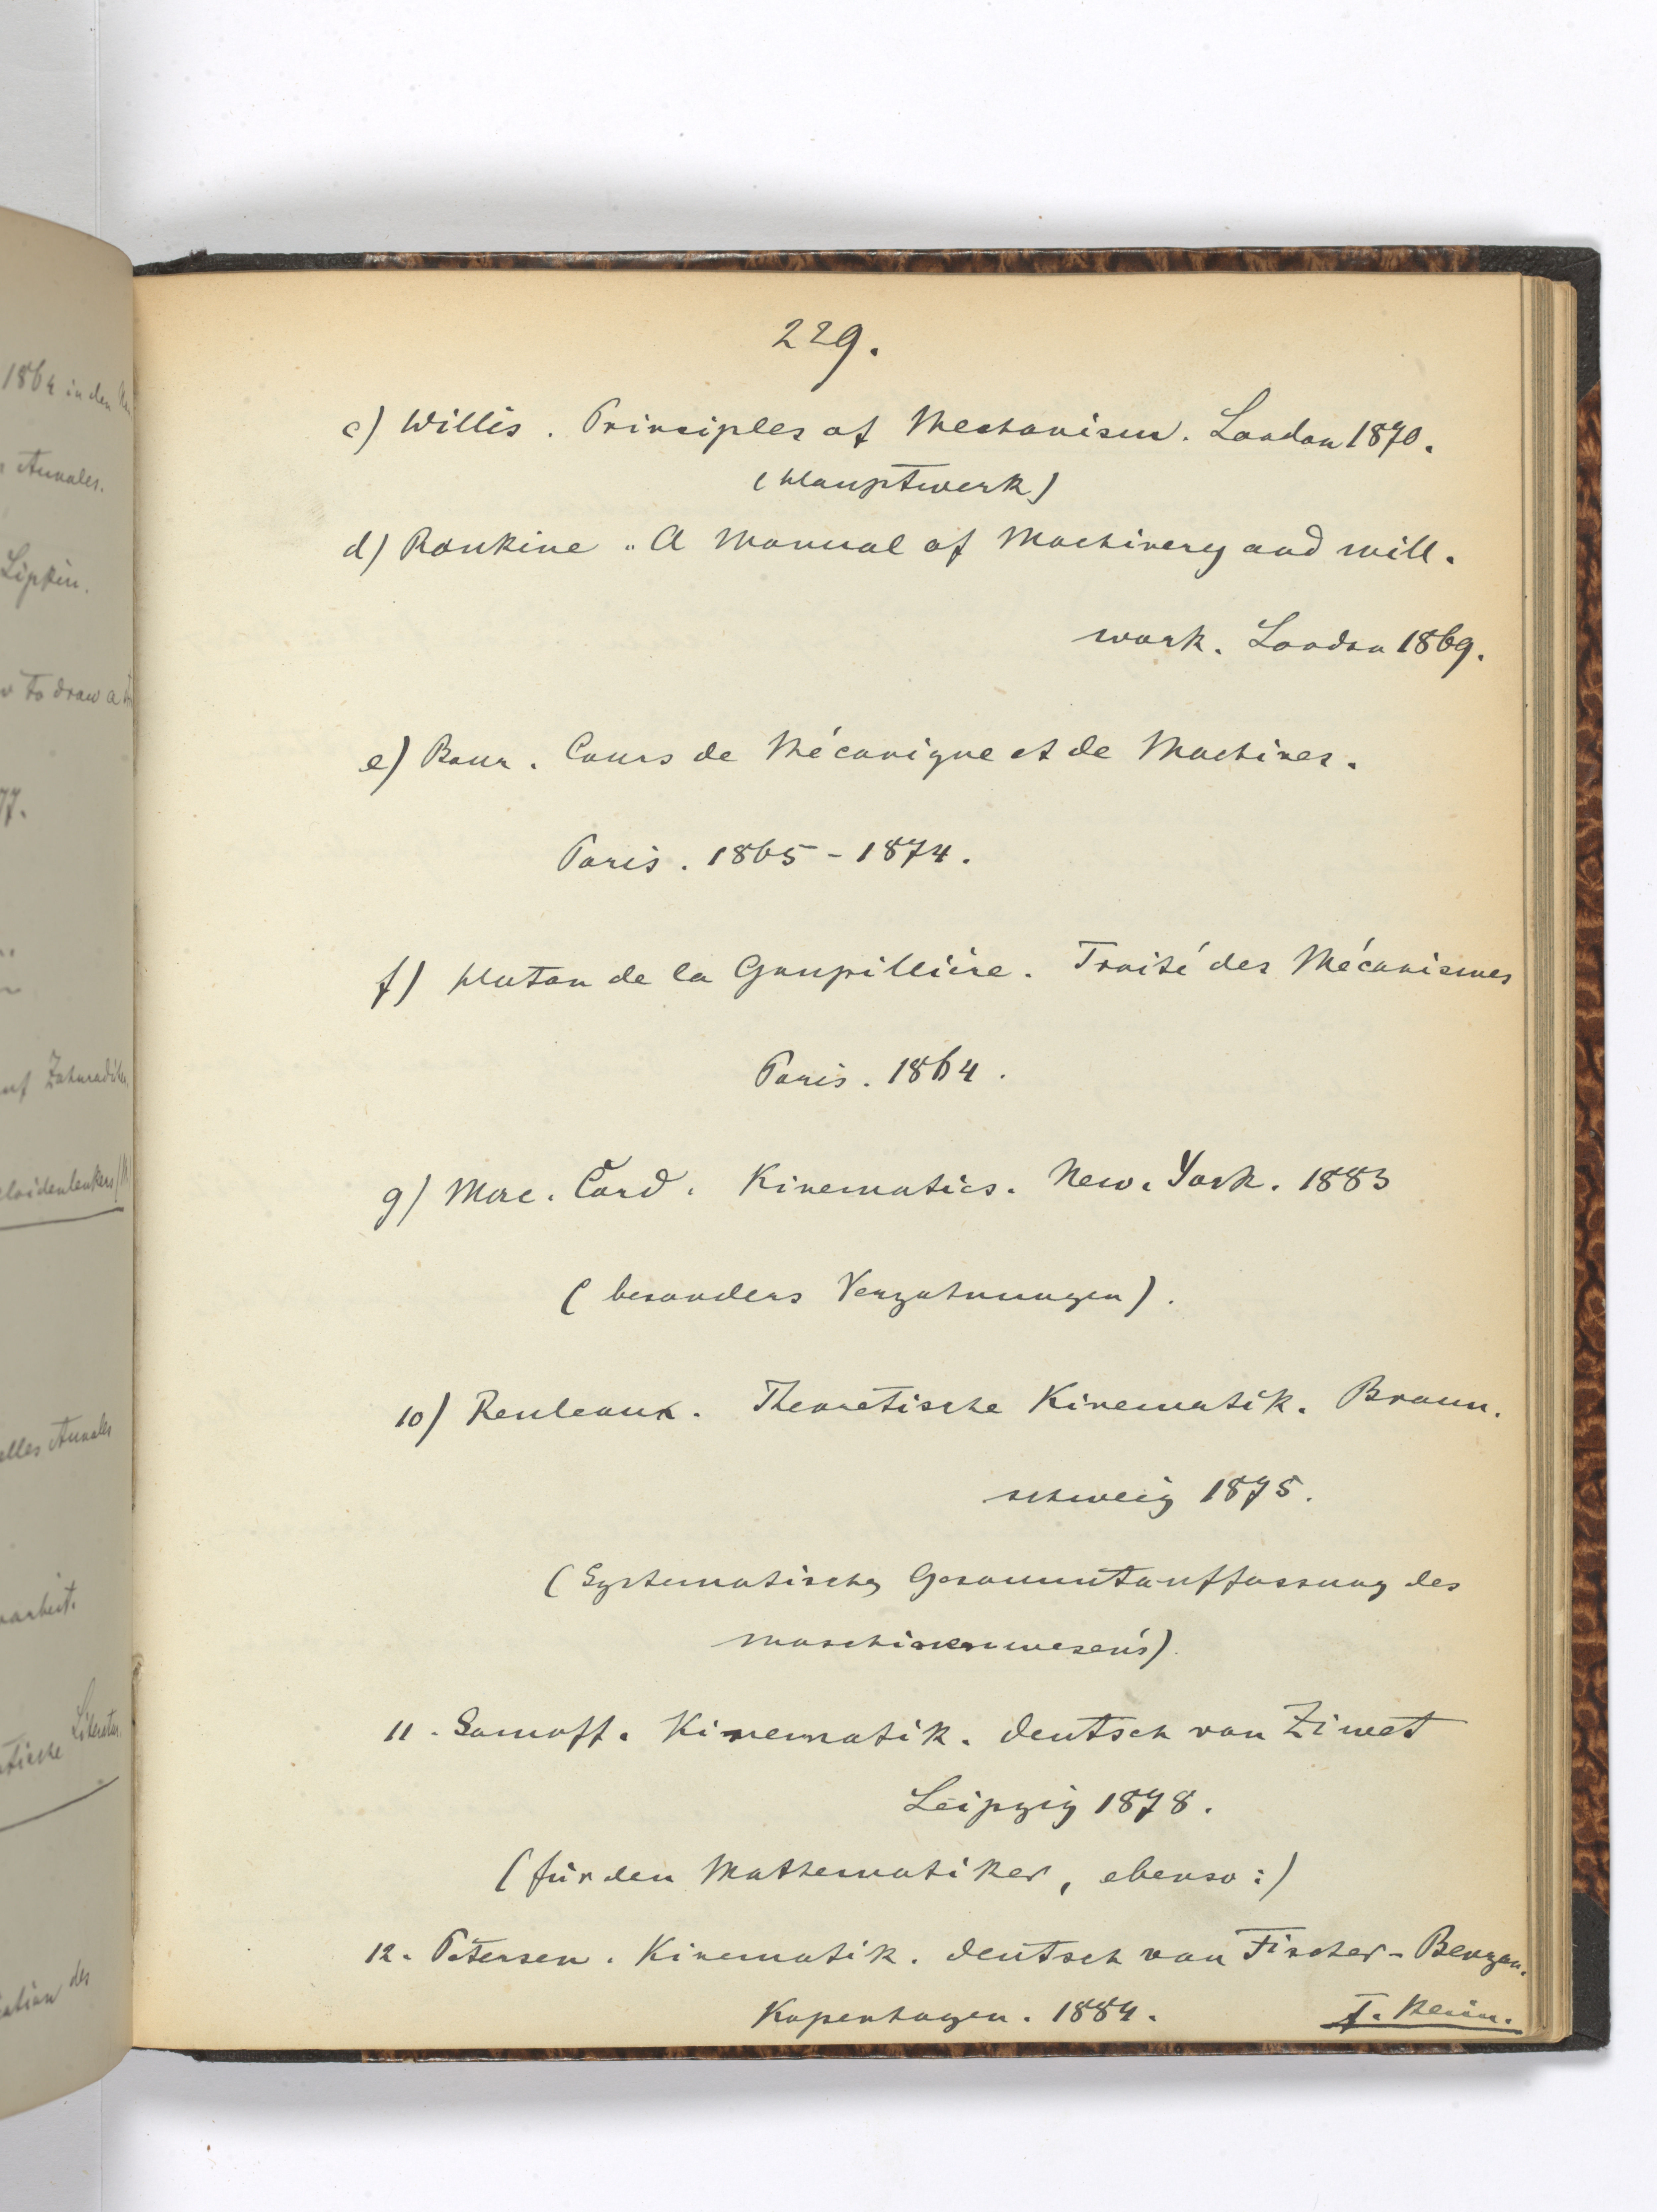 229.
c) Willis. Principles of Mechanism. London 1870.
(Hauptwerk)
d) Rankine. A Manual of Machinery and mill-
work. London 1869.
e) Bour. Cours de Mécanique et de Machines.
Paris. 1865-1874.
f) Haton de la Goupillière. Traité des Mécanismes
Paris. 1864.
g) Mac. Cord. Kinematics. New. York. 1883
(besonders Verzahnungen).
10) Reuleaux. Theoretische Kinematik. Braun.
schweig 1875.
(Systematische Gesammtauffassung des
maschinenwesens)
11. Somoff. Kinematik. deutsch von Ziwet
Leipzig 1878.
(für den Mathematiker, ebenso:)
12. Petersen. Kinematik. deutsch von Fischer-Benzon.
Kopenhagen. 1884.
F. Klein.
1864 in den
Annales.
Lipkin.
to draw a
77.
Zahnrädern
Annales
Literatur.
des